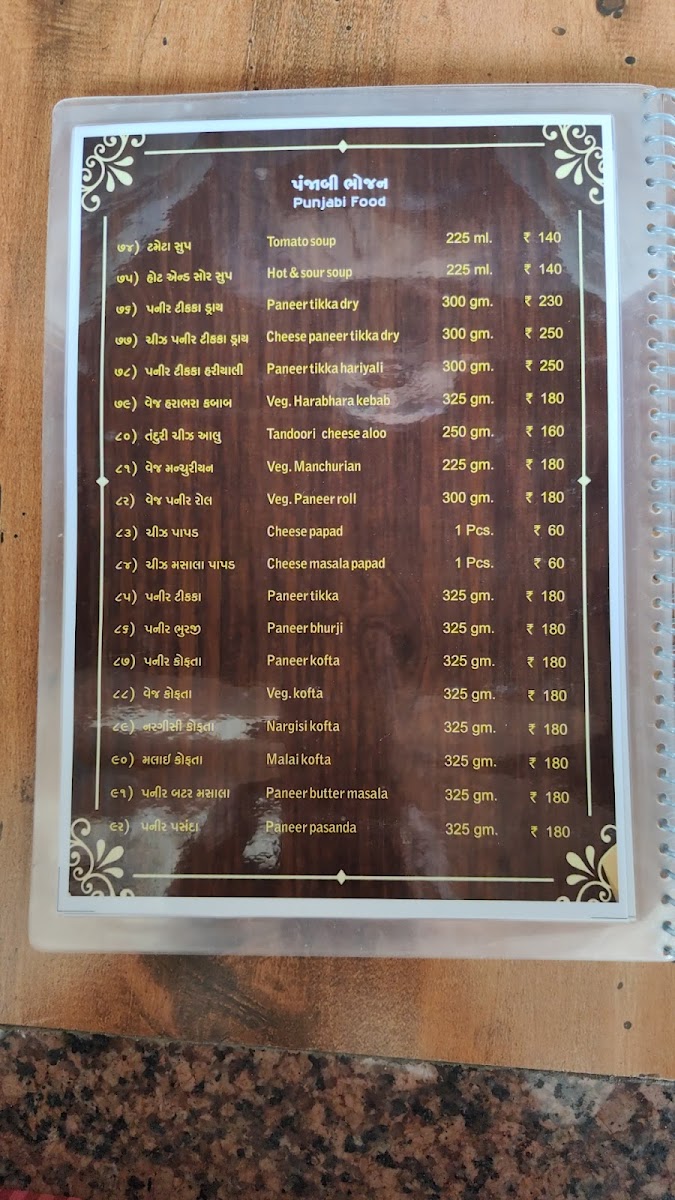 પંજાબી ભોજન
Punjabi Food
૭૪) ટમેટા સુપ Tomato soup 225 ml. ₹ 140
૭૫) હોટ એન્ડ સોર સુપ Hot & sour soup 225 ml. ₹ 140
૭૬) પનીર ટીકકા ડ્રાય Paneer tikka dry 300 gm. ₹ 230
૭૭) ચીઝ પનીર ટીકકા ડ્રાય Cheese paneer tikka dry 300 gm. ₹ 250
૭૮) પનીર ટીકકા હરીયાલી Paneer tikka hariyali 300 gm. ₹ 250
૭૯) વેજ હરાભરા કબાબ Veg. Harabhara kebab 325 gm. ₹ 180
૮૦) તંદુરી ચીઝ આલુ Tandoori cheese aloo 250 gm. ₹ 160
૮૧) વેજ મન્ચુરીયન Veg. Manchurian 225 gm. ₹ 180
૮૨) વેજ પનીર રોલ Veg. Paneer roll 300 gm. ₹ 180
૮૩) ચીઝ પાપડ Cheese papad 1 Pcs. ₹ 60
૮૪) ચીઝ મસાલા પાપડ Cheese masala papad 1 Pcs. ₹ 60
૮૫) પનીર ટીકકા Paneer tikka 325 gm. ₹ 180
૮૬) પનીર ભુરજી Paneer bhurji 325 gm. ₹ 180
૮૭) પનીર કોફતા Paneer kofta 325 gm. ₹ 180
૮૮) વેજ કોફતા Veg. kofta 325 gm. ₹ 180
૮૯) નરગીસી કોફતા Nargisi kofta 325 gm. ₹ 180
૯૦) મલાઈ કોફતા Malai kofta 325 gm. ₹ 180
૯૧) પનીર બટર મસાલા Paneer butter masala 325 gm. ₹ 180
૯૨) પનીર પસંદા Paneer pasanda 325 gm. ₹ 180